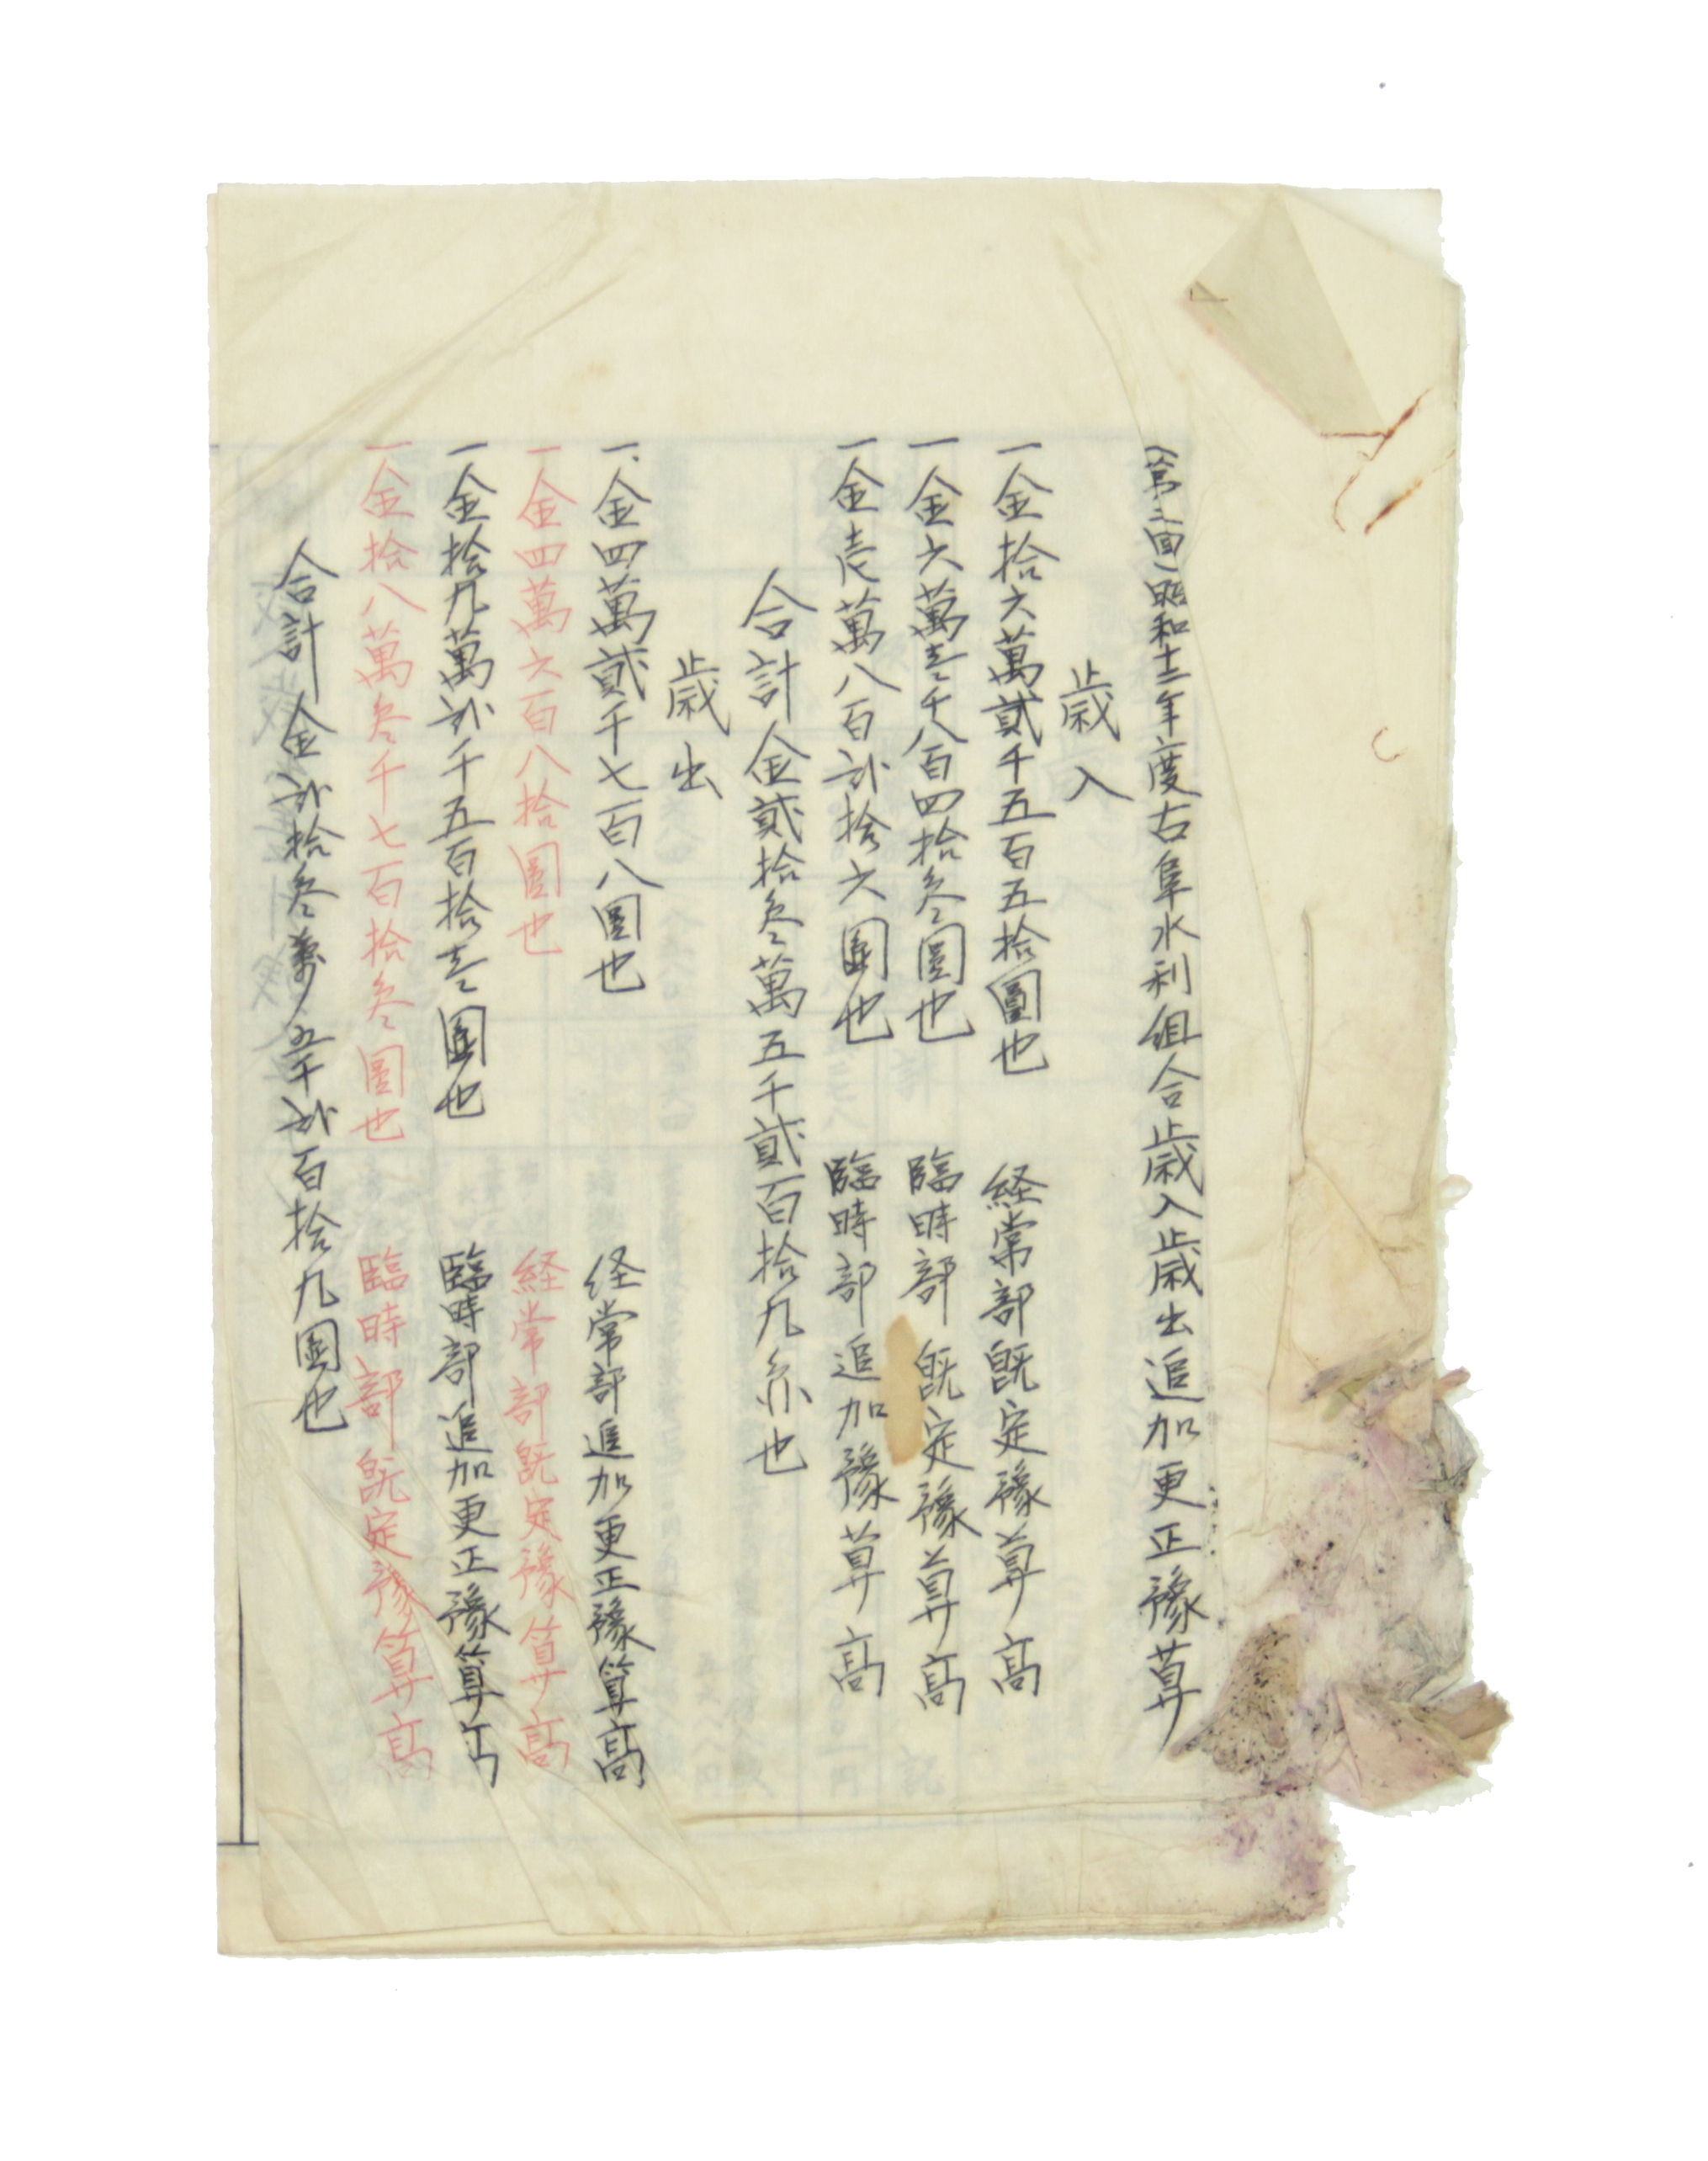 （第二回）昭和十二年度古阜水利組合歳入歳出追加更正豫算
歳入
一金拾六萬貳千五百五拾圓也 経常部既定豫算高
一金六萬壱千八百四拾参圓也 臨時部既定豫算高
一金壱萬八百弐拾六圓也 臨時部追加豫算高
合計金貳拾参萬五千貳百拾九也
歳出
一、金四萬貳千七百八圓也 経常部追加更正豫算高
一金四萬六百八拾圓也 経常部既定豫算高
一金拾九萬弐千五百拾壱圓也 臨時部追加更正豫算高
一金拾八萬参千七百拾参圓也 臨時部既定豫算高
合計金弐拾参萬五千弐百拾九圓也